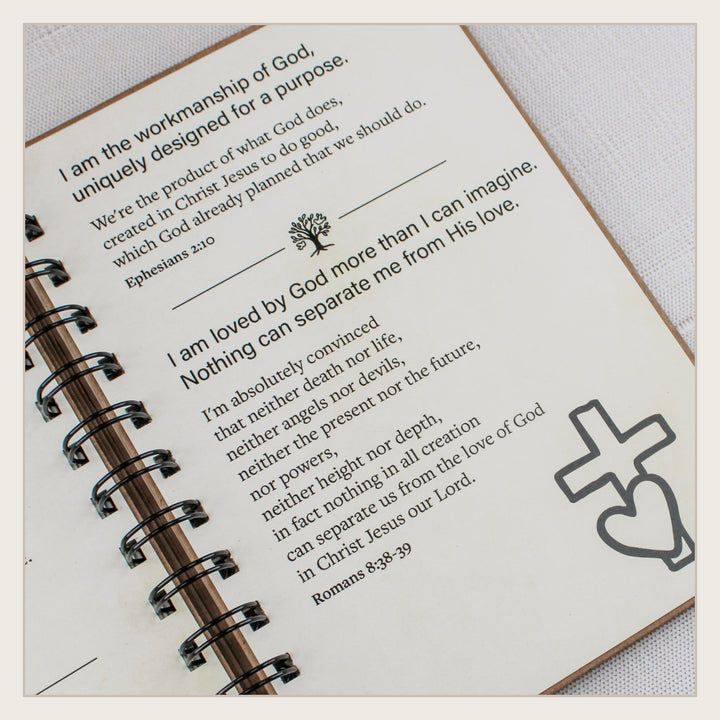 I am the workmanship of God,
uniquely designed for a purpose.
We're the product of what God does,
created in Christ Jesus to do good,
which God already planned that we should do.
Ephesians 2:10
I am loved by God more than I can imagine.
Nothing can separate me from His love.
I'm absolutely convinced
that neither death nor life,
neither angels nor devils,
neither the present nor the future,
nor powers,
neither height nor depth,
in fact nothing in all creation
can separate us from the love of God
in Christ Jesus our Lord.
Romans 8:38-39